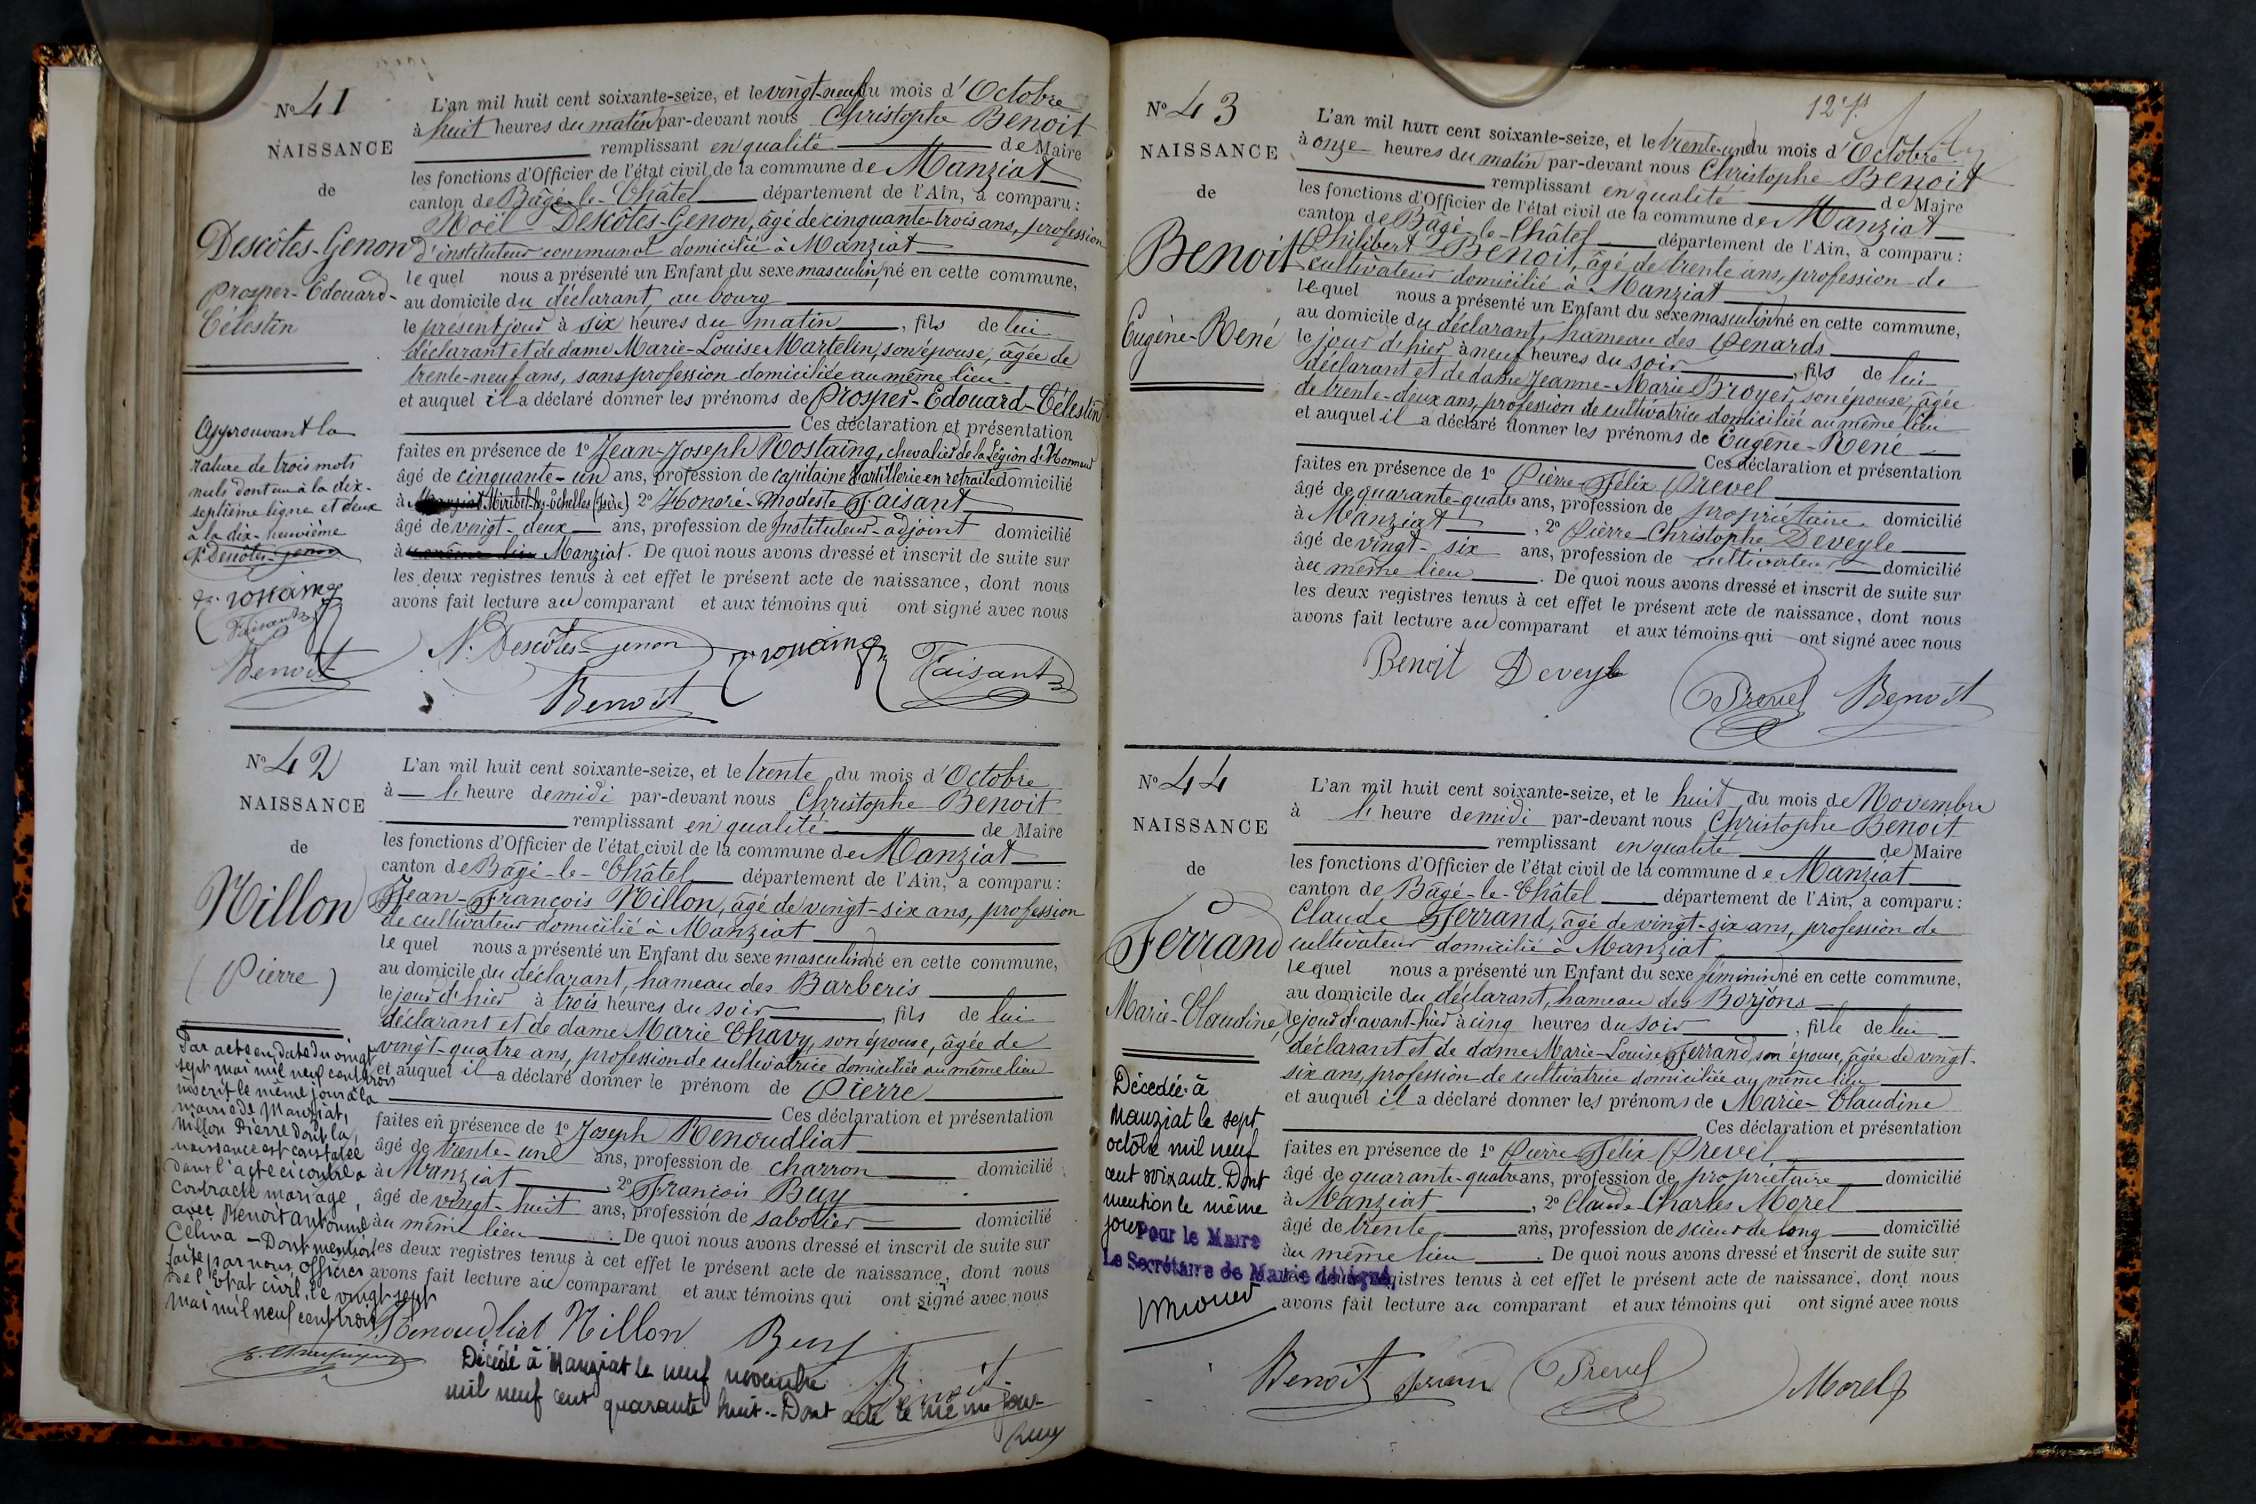 N° 41
NAISSANCE
de
Descôtes-Genon
Prosper-Edouard-
Célestin
Approuvant la
rature de trois mots
nuls dont un à la dix-
septième ligne et deux
à la dix-neuvième
N. Descôtes-Genon
Rostaing
Faisant
Benoit
L'an mil huit cent soixante-seize, et le vingt-neuf du mois d'Octobre
à huit heures du matin par-devant nous Christophe Benoit
remplissant en qualité de Maire
les fonctions d'Officier de l'état civil de la commune de Manziat
canton de Bâgé-le-Châtel département de l'Ain, a comparu :
Noël Descôtes-Genon, âgé de cinquante-trois ans, profession
d'instituteur communal domicilié à Manziat
lequel nous a présenté un Enfant du sexe masculin, né en cette commune,
au domicile du déclarant, au bourg
le présent jour à six heures du matin, fils de lui
déclarant et de dame Marie-Louise Martelin, son épouse, âgée de
trente-neuf ans, sans profession domiciliée au même lieu
et auquel il a déclaré donner les prénoms de Prosper-Edouard-Célestin
Ces déclaration et présentation
faites en présence de 1° Jean-Joseph Rostaing, chevalier de la Légion d'Honneur
âgé de cinquante-un ans, profession de capitaine d'artillerie en retraite domicilié
à Manziat Miribel-les-Echelles (Isère) 2° Honoré-Modeste Faisant
âgé de vingt-deux ans, profession de Instituteur-adjoint domicilié
à u même lieu Manziat. De quoi nous avons dressé et inscrit de suite sur
les deux registres tenus à cet effet le présent acte de naissance, dont nous
avons fait lecture au comparant et aux témoins qui ont signé avec nous
N. Descôtes-Genon Rostaing Faisant
Benoit
N° 42
NAISSANCE
de
Nillon
(Pierre)
Par acte en date du vingt
sept mai mil neuf cent trois
inscrit le même jour à la
mairie de Manziat,
Nillon Pierre dont la
naissance est constatée
dans l'acte ci contre a
contracté mariage
avec Benoit Antonine
Célina – Dont mention
faite par nous, officier
de l'Etat civil, le vingt-sept
mai mil neuf cent trois
L'an mil huit cent soixante-seize, et le trente du mois d'Octobre
à – l' heure de midi par-devant nous Christophe Benoit
remplissant en qualité de Maire
les fonctions d'Officier de l'état civil de la commune de Manziat
canton de Bâgé-le-Châtel département de l'Ain, a comparu :
Jean-François Nillon, âgé de vingt-six ans, profession
de cultivateur domicilié à Manziat
lequel nous a présenté un Enfant du sexe masculin né en cette commune,
au domicile du déclarant, hameau des Barberis
le jour d'hier à trois heures du soir, fils de lui
déclarant et de dame Marie Chavy, son épouse, âgée de
vingt-quatre ans, profession de cultivatrice domiciliée au même lieu
et auquel il a déclaré donner le prénom de Pierre
Ces déclaration et présentation
faites en présence de 1° Joseph Renoudliat
âgé de trente-un ans, profession de charron domicilié
à Manziat, 2° François Buy
âgé de vingt-huit ans, profession de sabotier domicilié
au même lieu. De quoi nous avons dressé et inscrit de suite sur
les deux registres tenus à cet effet le présent acte de naissance, dont nous
avons fait lecture au comparant et aux témoins qui ont signé avec nous
Renoudliat Nillon Buy
Benoit
Décédé à Manziat le neuf novembre
mil neuf cent quarante huit. - Dont acte le même jour
12e f.
N° 43
NAISSANCE
de
Benoit
Eugène-René
L'an mil huit cent soixante-seize, et le trente-un du mois d'Octobre
à onze heures du matin par-devant nous Christophe Benoit
remplissant en qualité de Maire
les fonctions d'Officier de l'état civil de la commune de Manziat
canton de Bâgé-le-Châtel département de l'Ain, a comparu :
Philibert Benoit, âgé de trente ans, profession de
cultivateur domicilié à Manziat
lequel nous a présenté un Enfant du sexe masculin né en cette commune,
au domicile du déclarant, hameau des Penards
le jour d'hier à neuf heures du soir, fils de lui
déclarant et de dame Jeanne-Marie Broyer, son épouse, âgée
de trente-deux ans, profession de cultivatrice domiciliée au même lieu
et auquel il a déclaré donner les prénoms de Eugène-René
Ces déclaration et présentation
faites en présence de 1° Pierre-Félix Prevel
âgé de quarante-quatre ans, profession de propriétaire domicilié
à Manziat, 2° Pierre-Christophe Deveyle
âgé de vingt-six ans, profession de cultivateur domicilié
au même lieu. De quoi nous avons dressé et inscrit de suite sur
les deux registres tenus à cet effet le présent acte de naissance, dont nous
avons fait lecture au comparant et aux témoins qui ont signé avec nous
Benoit Deveyle Prevel Benoit
N° 44
NAISSANCE
de
Ferrand
Marie-Claudine
Décédée à
Manziat le sept
octobre mil neuf
cent soixante. Dont
mention le même
jour
Pour le Maire
Le Secrétaire de Mairie délégué,
L'an mil huit cent soixante-seize, et le huit du mois de Novembre
à l' heure de midi par-devant nous Christophe Benoit
remplissant en qualité de Maire
les fonctions d'Officier de l'état civil de la commune de Manziat
canton de Bâgé-le-Châtel département de l'Ain, a comparu :
Claude Ferrand, âgé de vingt-six ans, profession de
cultivateur domicilié à Manziat
lequel nous a présenté un Enfant du sexe féminin né en cette commune,
au domicile du déclarant, hameau des Borjons
le jour d'avant-hier à cinq heures du soir, fille de lui
déclarant et de dame Marie-Louise Ferrand, son épouse, âgée de vingt-
six ans, profession de cultivatrice domiciliée au même lieu
et auquel il a déclaré donner les prénoms de Marie-Claudine
Ces déclaration et présentation
faites en présence de 1° Pierre Félix Prevel
âgé de quarante-quatre ans, profession de propriétaire domicilié
à Manziat, 2° Claude-Charles Morel
âgé de trente ans, profession de scieur de long domicilié
au même lieu. De quoi nous avons dressé et inscrit de suite sur
les deux registres tenus à cet effet le présent acte de naissance, dont nous
avons fait lecture au comparant et aux témoins qui ont signé avec nous
Benoit Ferrand Prevel Morel